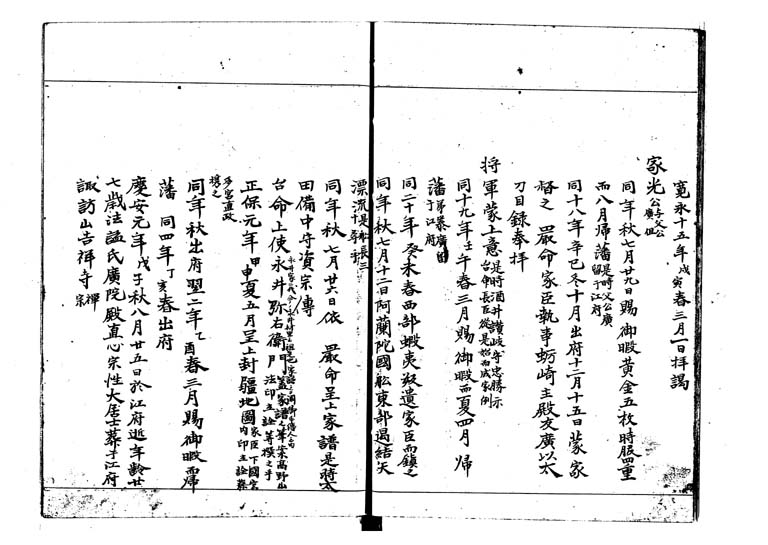 寛永十五年戊寅春三月一日拝謁
家光公 公廣
同年秋七月廿九日賜御暇黄金五枚時服四重
而八月帰藩 是時父公廣留于江府
同十八年辛巳冬十月出府十二月十五日蒙家
督之嚴命家臣執事蛎崎主殿友廣以太
刀目録奉拝
将軍蒙上意 是時酒井讃岐守忠勝示台命長臣從是始而成家例
同十九年壬午春三月賜御暇而夏四月帰
藩
同二十年癸未春西部蝦夷
遺家臣而鎮之
同年秋七月十二日阿蘭陀國舩東部
漂流
同年秋七月廿六日依嚴命呈上家譜是蒋太
田備中守資宗傳
台命上使永井弥右衛門
正保元年甲申夏五月呈上封疆地圖 家臣下國宮内
同年秋出府翌二年乙酉春三月賜御暇而帰
藩同四年丁亥春出府
慶安元年戊子秋八月廿五日於江府逝年齢廿
七歳法諡氏廣院殿直心宗性大居士葬于江府
諏訪山吉祥寺 禪宗